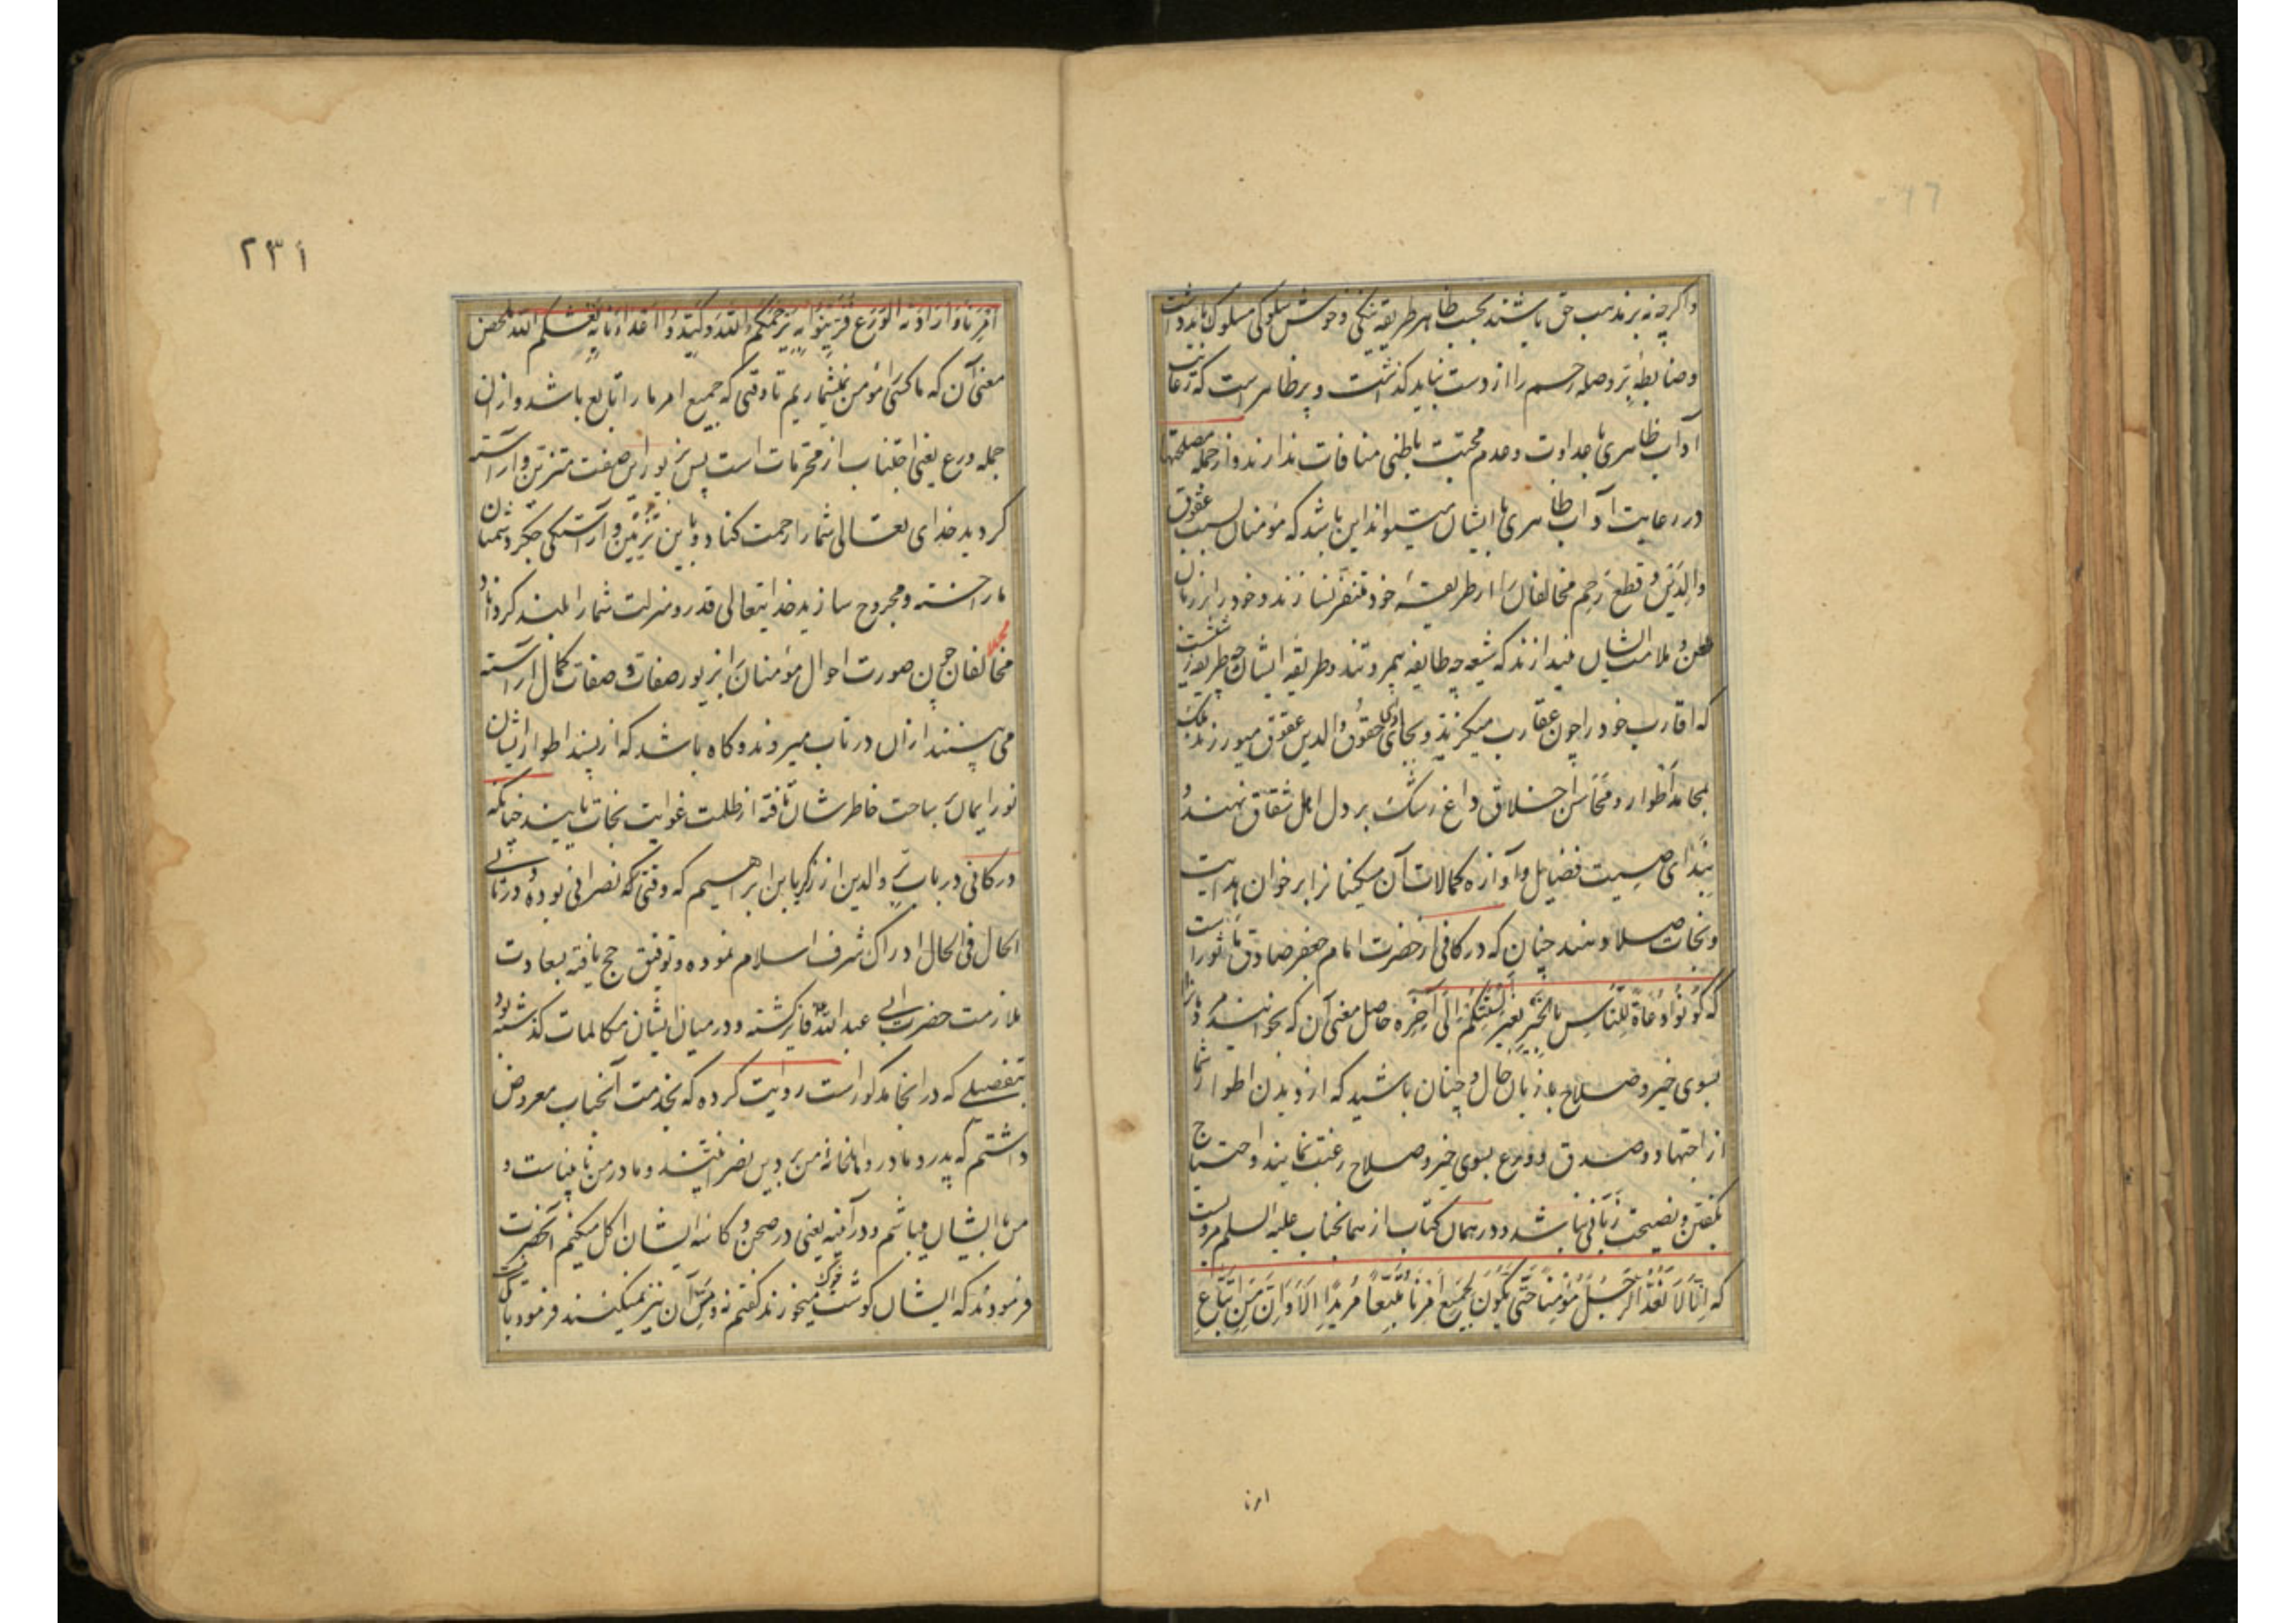 واکرچه نه برمذهب حق باشند بحسب ظاهر طریقه نیکی وخوش سلوکی مسلوک باید داشت
وضابطه بر وصله رحم را از دست نباید کذاشت وپر ظاهر است که رعایت
آداب ظاهری با عداوت وعدم محبت باطنی منافات ندارند واز جمله مصلحتها
در رعایت آداب ظاهری با ایشان میتواند این باشد که مؤمنان بسبب عقوق
والدین وقطع رحم مخالفان را از طریقه خود متنفر نسازند وخود را بر زبان
طعن وملامت ایشان نیندازند که شیعه چه طایفه بیمروتند وطریقه ایشان چه طریقه زشتست
که اقارب خود را چون عقارب میکزند وبجای ادای حقوق والدین عقوق میورزند بلکه
بمحامد اطوار ومحاسن اخلاق داغ رشک بر دل اهل شقاق نهند و
بندای صیت فضایل وآوازه کمالات آن مسکینانرا بر خوان هدایت
ونجات صلا دهند چنان که در کافی از حضرت امام جعفر صادق ماثور است
که کُونُوا دُعَاةً لِلنَّاسِ بِالخَیْرِ بِغَیْرِ اَلْسِنَتِکُمْ اِلَی آخِرِه حاصل معنی آن که بخوانید مردم را
بسوی خیر وصلاح نه بزبان حال وچنان باشید که از دیدن اطوار شما
از اجتهاد وصدق وورع بسوی خیر وصلاح رغبت نمایند واحتیاج
بکفتن ونصیحت زبانی نباشد ودر همان کتاب از همانجناب علیه السلم مرویست
که اِنَّا لَا نَعُدُّ الرَّجُلَ مُؤْمِناً حَتّی یَکُونَ لِجَمِیعِ اَمْرِنَا مُتَّبِعاً مُرِیداً اَلَا وَاِنَّ مِنْ اِتِّبَاعِ
امرنا
۲۳۱
اَمْرِنَا وَاِرَادَتِهِ الوَرَعَ فَتَزَیَّنُوا بِهِ یَرْحَمْکُمُ اللّهُ وَکَبِّدُوا اَعْدَاءَنَا بِهِ یَنْعَشْکُمُ اللّه ملخص
معنی آن که ما کسی را مؤمن نمیشماریم تا وقتی که جمیع امر ما را تابع باشد واز ان
جمله ورع یعنی اجتناب از محرمات است پس بزیور این صفت متزین وآراسته
کردید خدای تعالی شما را رحمت کناد وباین تزیین وآراستکی جکر دشمنان
ما را خسته ومجروح سازید خدایتعالی قدر ومنزلت شما را بلند کرداناد
مخالفان چون صورت احوال مؤمنان را بزیور صفات کمال آراسته
می بینند ازان در تاب میروند وکاه باشد که از پسند اطوار ایشان
نور ایمان بساحت خاطر شان تافته از ظلمت غوایت نجات یابند چنانکه
در کافی در باب بر والدین از زکریا بن ابراهیم که وقتی که نصرانی بوده ودر ثانی
الحال فی الحال ادراک شرف اسلام نموده وتوفیق حج یافته بسعادت
ملازمت حضرت ابی عبد الله فایز کشته ودر میان ایشان مکالمات کذشته بود
بتفصیلی که در انجا مذکور است روایت کرده که بخدمت آنجناب معروض
داشتم که پدر ومادر واهلخانه من بر دین نصرانیتند ومادر من نابیناست و
من با ایشان میباشم ودر آنیه یعنی در صحن وکاسه ایشان اکل میکنیم آنحضرت
فرمودند که ایشان کوشت خوک میخورند کفتم نه ومس آن نیز نمیکنند فرمود